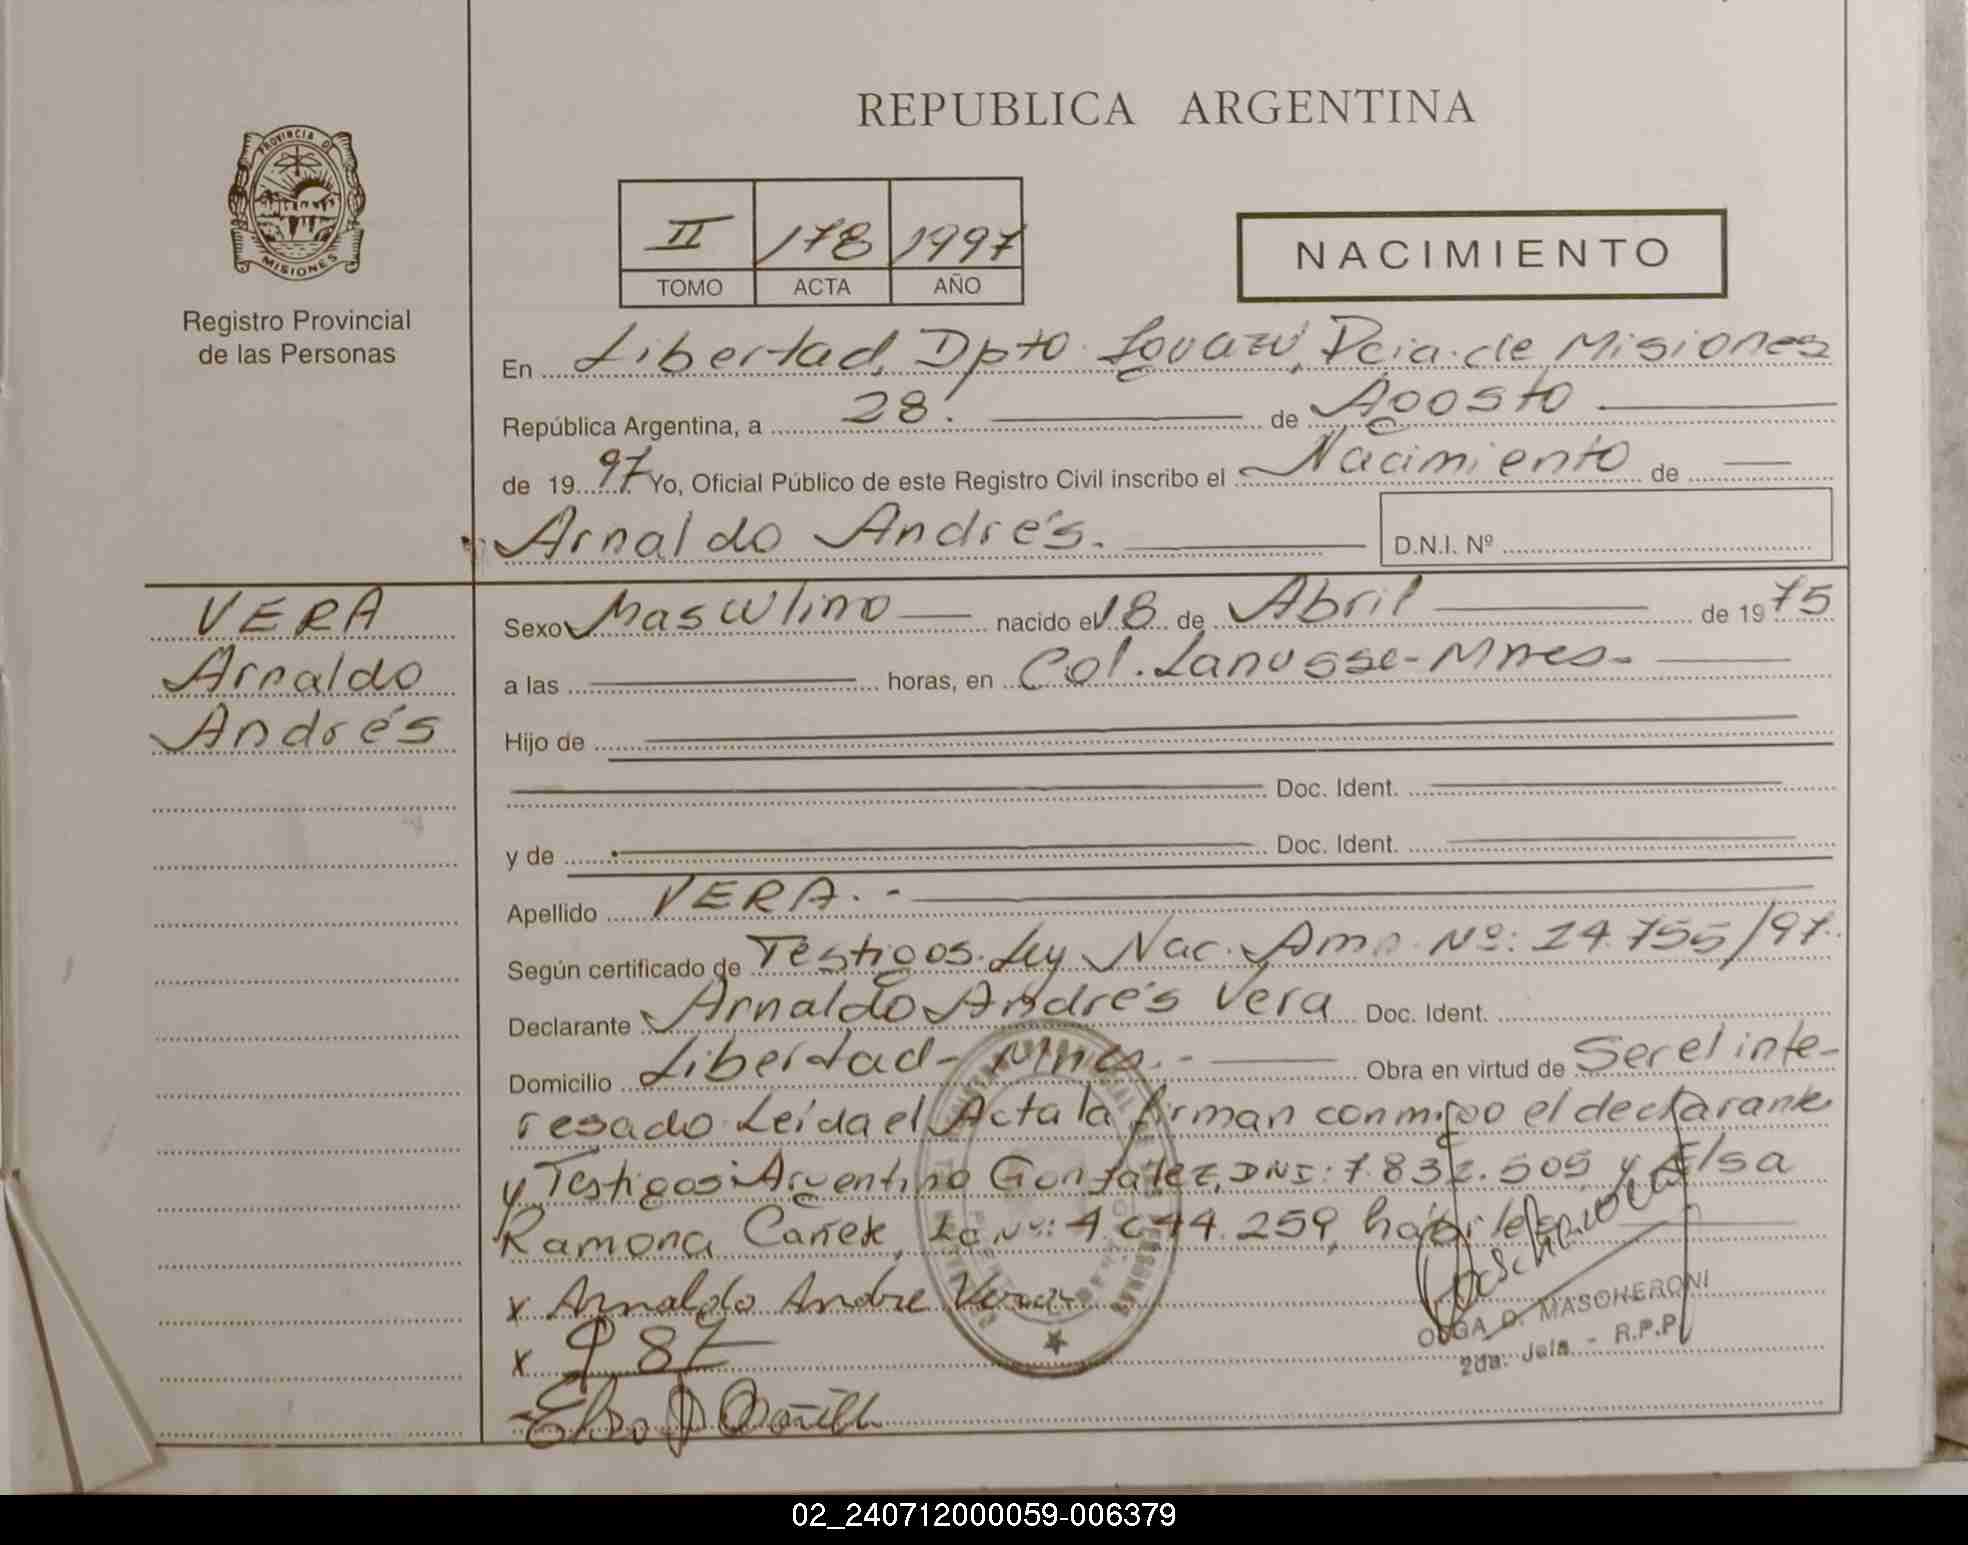 REPUBLICA ARGENTINA
PROVINCIA DE MISIONES
Registro Provincial
de las Personas
II 178 1997
TOMO ACTA AÑO
NACIMIENTO
En Libertad, Dpto. Iguazú, Pcia. de Misiones
República Argentina, a 28. de Agosto
de 19 97 Yo, Oficial Público de este Registro Civil inscribo el Nacimiento de
Arnaldo Andrés.
D.N.I. Nº
VERA
Arnaldo
Andrés
Sexo Masculino nacido el 18 de Abril de 19 75
a las horas, en Col. Lanusse - Mnes -
Hijo de
Doc. Ident.
y de Doc. Ident.
Apellido VERA. -
Según certificado de Testigos. Ley Nac. Amn. Nº: 24.755/97.
Declarante Arnaldo Andrés Vera Doc. Ident.
Domicilio Libertad - Mnes. - Obra en virtud de Ser el inte-
resado. Leída el Acta la firman conmigo el declarante
y Testigos: Argentino Gonzalez, DNI: 7.832.505 y Elsa
Ramona Cañete, Lc Nº: 4.644.259, hábiles
x Arnaldo Andre Vera
x
OLGA D. MASCHERONI
2da. Jefa. - R.P.P.
02_240712000059-006379